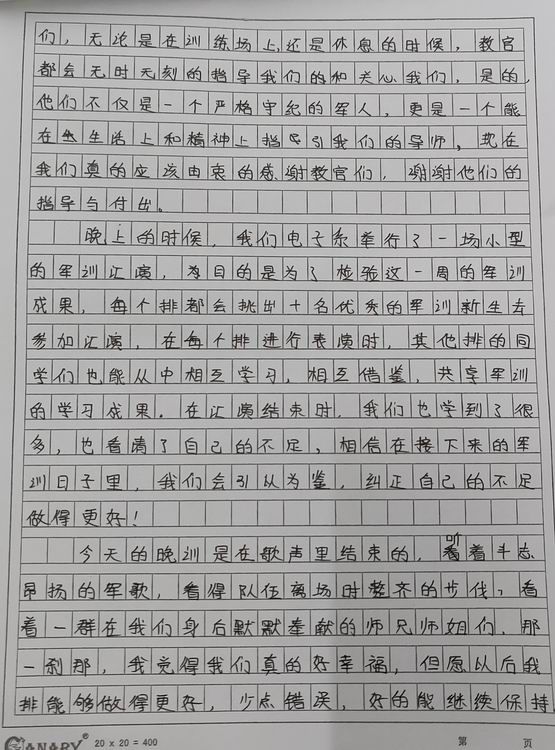 们，无论是在训练场上，还是休息的时候，教官
都会无时无刻的指导我们的和关心我们，是的，
他们不仅是一个严格守纪的军人，更是一个能
在生活上和精神上指导引我们的导师。现在
我们真的应该由衷的感谢教官们，谢谢他们的
指导与付出。
晚上的时候，我们电子系举行了一场小型
的军训汇演，目的是为了检验这一周的军训
成果，每个排都会挑出十名优秀的军训新生去
参加汇演，在每个排进行表演时，其他排的同
学们也能从中相互学习，相互借鉴，共享军训
的学习成果。在汇演结束时，我们也学到了很
多，也看清了自己的不足，相信在接下来的军
训日子里，我们会引以为鉴，纠正自己的不足
做得更好！
今天的晚训是在歌声里结束的，听着斗志
昂扬的军歌，看得队伍离场时整齐的步伐，看
着一群在我们身后默默奉献的师兄师姐们，那
一刹那，我觉得我们真的好幸福，但愿以后我
排能够做得更好，少点错误，好的能继续保持
CANARY® 20 x 20 = 400 第 页